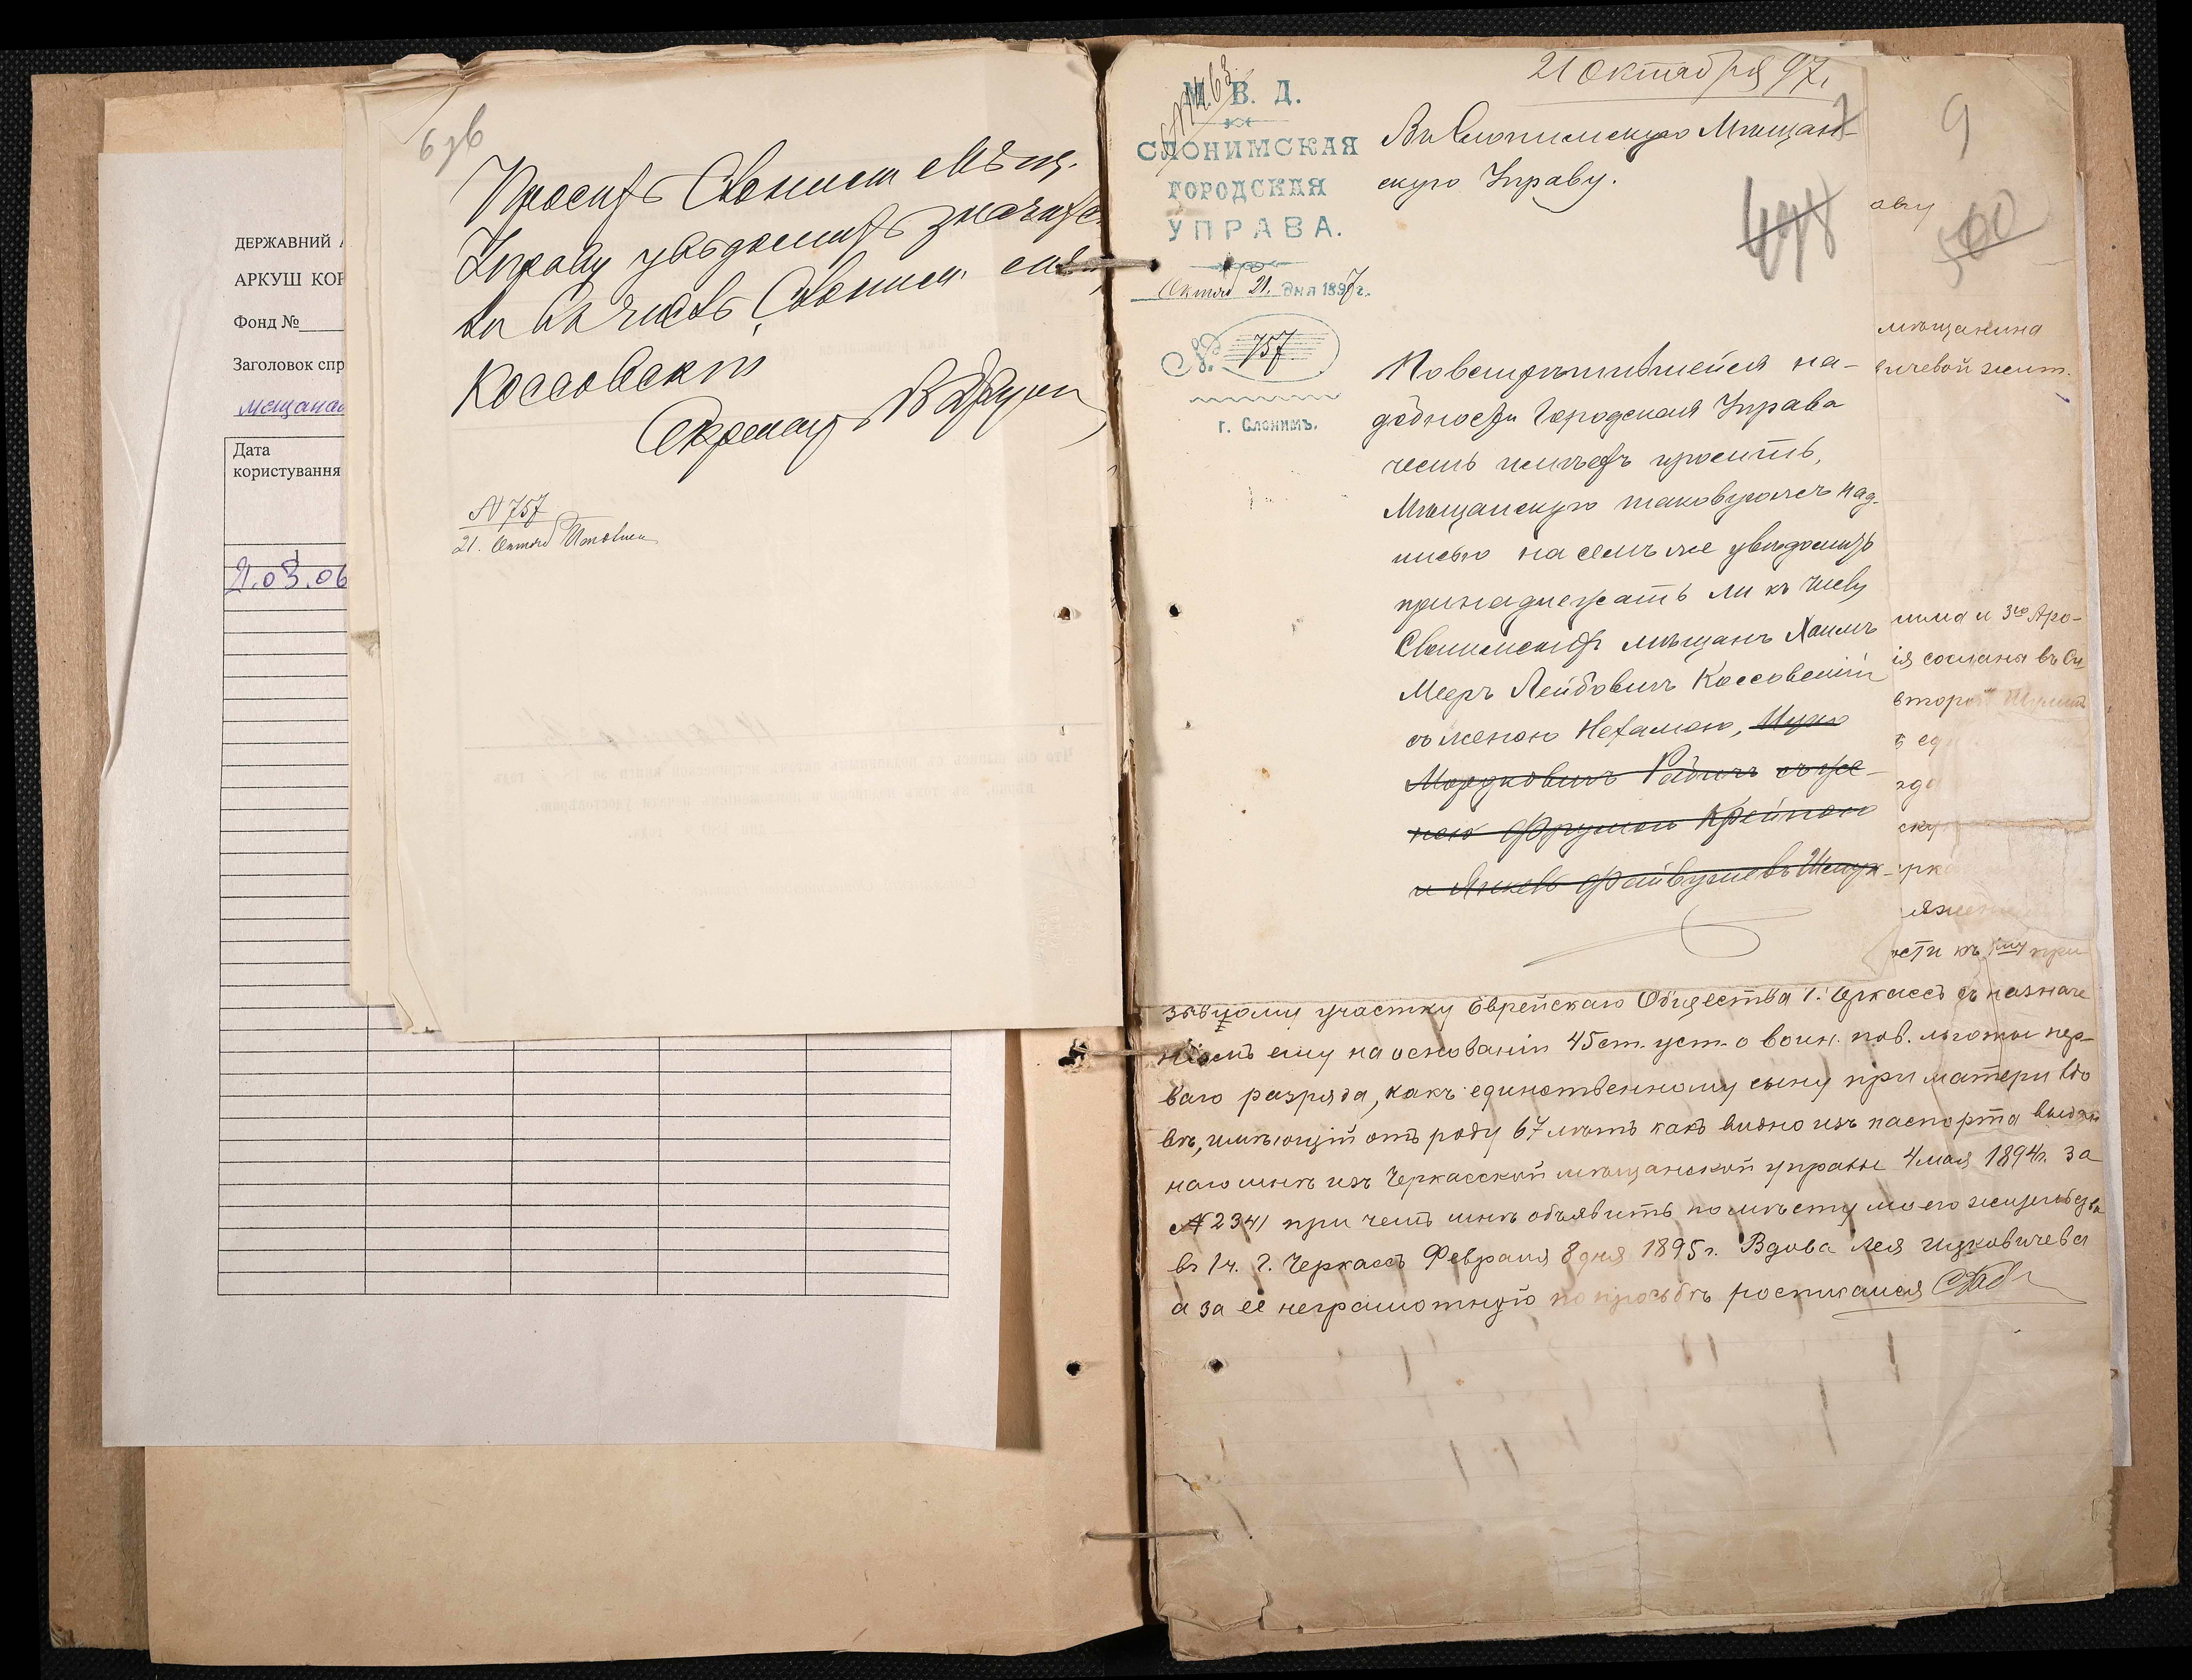 ДЕРЖАВНИЙ А
АРКУШ КОР
Фонд №
Заголовок спр
мещанам
Дата
користування
21.03.06
6 зв
Просить Слоним Мѣщ.
Управу увѣдомить значатся
ли въ числѣ Слоним мѣщ
Коссовскій
Секретарь
N 757
21. Октяб
21 Октября 97 г.
М. В. Д.
СЛОНИМСКАЯ
ГОРОДСКАЯ
УПРАВА.
Октяб 21. дня 1897 г.
№ 757
г. Слонимъ.
Въ Слонимскую Мѣщан-
скую Управу.
7
498
По встрѣтившейся на-
добности Городская Управа
честь имѣетъ просить,
Мѣщанскую таковую же над-
писью на семъ же увѣдомить
принадлежатъ ли къ числу
Слонимскихъ мѣщанъ Хаимъ
Мееръ Лейбовичъ Коссовскій
съ женою Нехамою,
Мордковичъ Рабичъ съ же-
ною Фрумою Крейною
и Янкель
9
аву
500
мѣщанина
ичевой жит.
има и 3го Аро-
ія сослана въ Си
второй
ску
ерк
ости къ 1му при
зывному участку Еврейскаго Общества г. Черкассъ съ назначе
ніемъ ему на основаніи 45 ст. уст. о воин. пов. льготы пер-
ваго разряда, какъ единственному сыну при матери вдо
вѣ, имѣющій отъ роду 67 лѣтъ какъ видно изъ паспорта выдан
наго мнѣ изъ Черкасской мѣщанской управы 4 мая 1894 г. за
№ 2341 при чемъ мнѣ объявить по мѣсту моего жительства
въ 1 ч. г. Черкассъ Февраля 8 дня 1895 г. Вдова Лея Ицковичева
а за её неграмотную по просьбѣ росписался